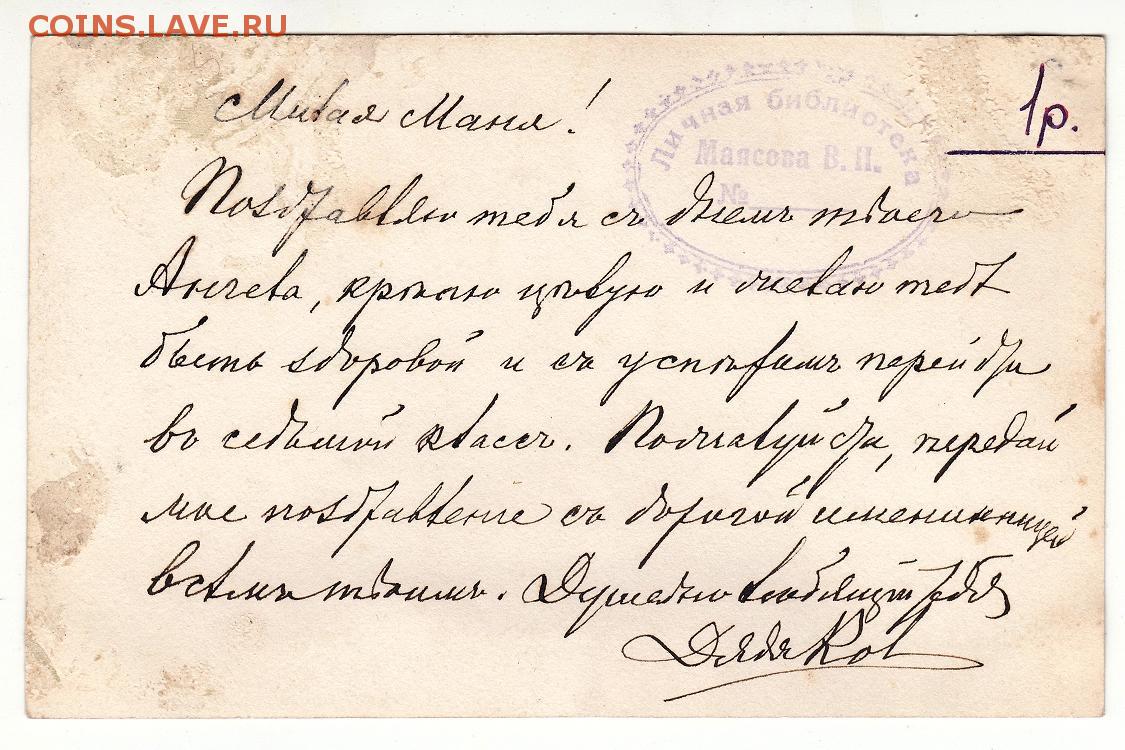 COINS.LAVE.RU
1р.
Личная библиотека
Маясова В. Н.
№
Милая Маня!
Поздравляю тебя съ днемъ твоего
Ангела, крѣпко цѣлую и желаю тебѣ
быть здоровой и съ успѣхомъ перейдти
во седьмой классъ. Пожалуйста, передай
мое поздравленіе съ дорогой имениницей
всѣмъ твоимъ. Душевно любящій тебя
Дядя